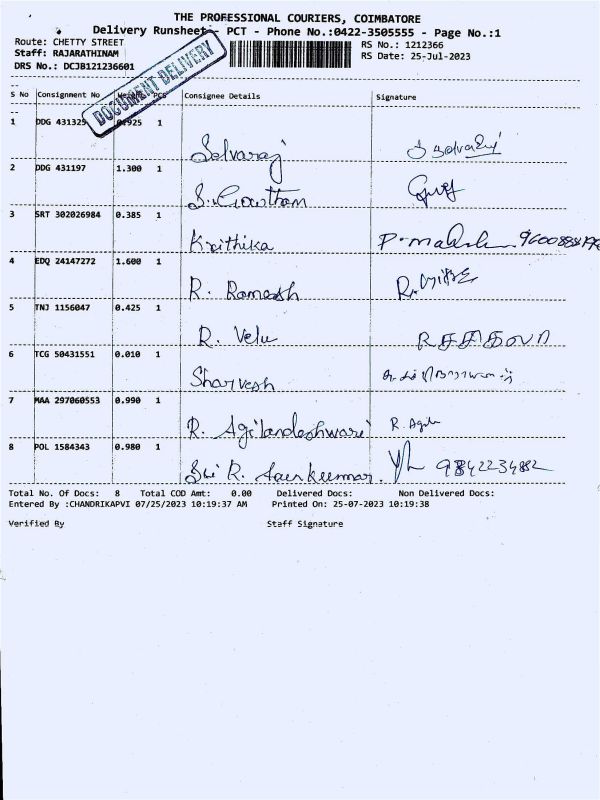 THE PROFESSIONAL COURIERS, COIMBATORE
Delivery Runsheet - PCT - Phone No.:0422-3505555 - Page No.:1
Route: CHETTY STREET
RS No.: 1212366
Staff: RAJARATHINAM
RS Date: 25-Jul-2023
DRS No.: DCJB121236601
DOCUMENT DELIVERY
S No Consignment No PCS Consignee Details Signature
1 DDG 431325 0.925 1 Selvaraj
2 DDG 431197 1.300 1 S. Gowtham
3 SRT 302026984 0.385 1 Krithika
4 EDQ 24147272 1.600 1 R. Ramesh
5 TNJ 1156047 0.425 1 R. Velu
6 TCG 50431551 0.010 1 Sharvesh
7 MAA 297060553 0.990 1 R. Agilandeshwari R. Agila
8 POL 1584343 0.980 1 Sri R. 9842234882
Total No. Of Docs: 8 Total COD Amt: 0.00 Delivered Docs: Non Delivered Docs:
Entered By :CHANDRIKAPVI 07/25/2023 10:19:37 AM Printed On: 25-07-2023 10:19:38
Verified By Staff Signature